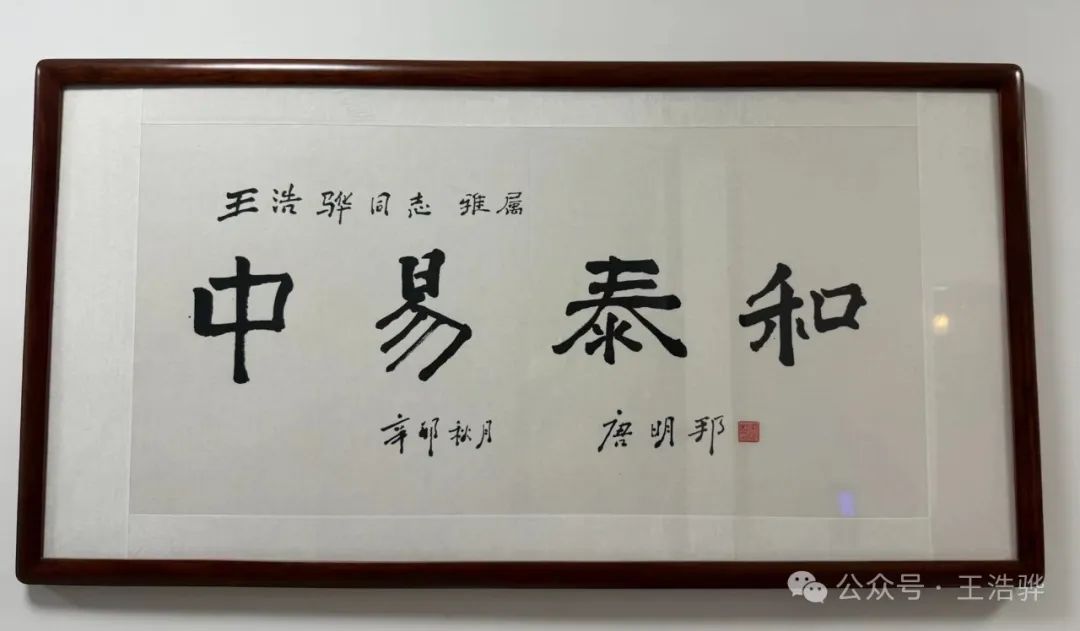 王浩骅同志 雅属
中易泰和
辛卯秋月 唐明邦
公众号 · 王浩骅